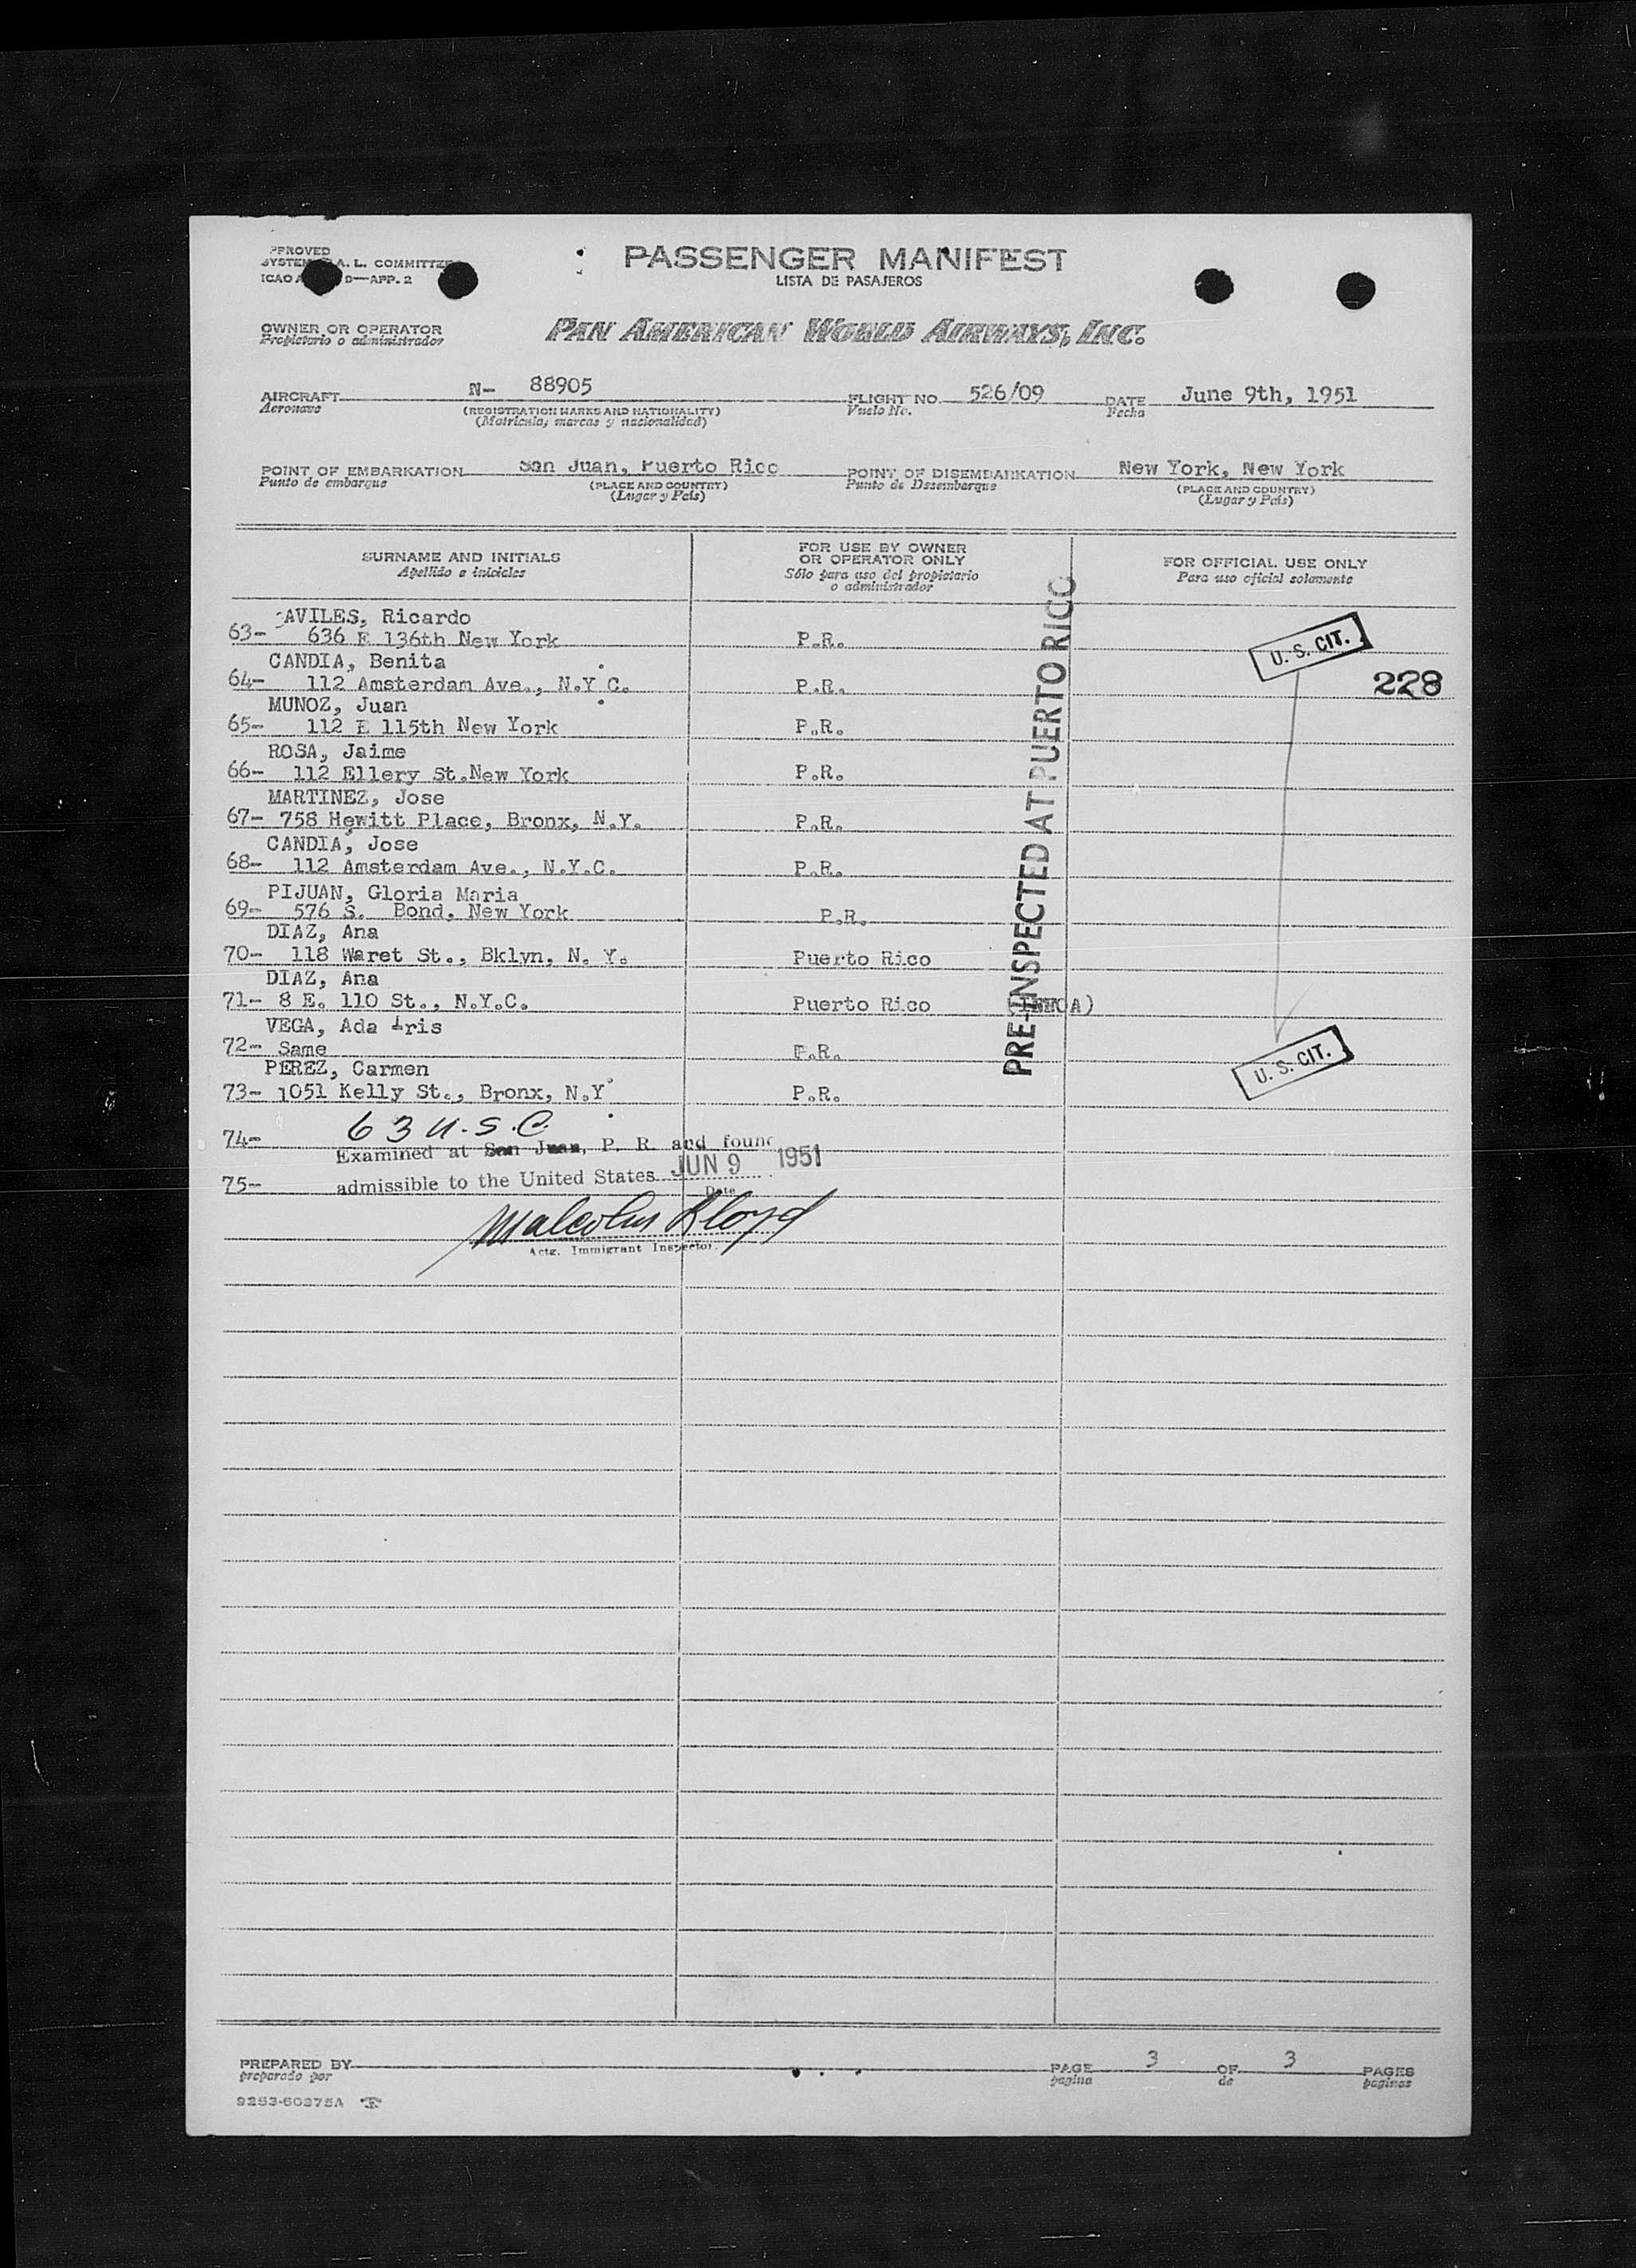 PASSENGER MANIFEST
LISTA DE PASAJEROS
PPROVED
SYSTEM A. L. COMMITTEE
ICAO A D—APP. 2
OWNER OR OPERATOR
Propietario o administrador
PAN AMERICAN WORLD AIRWAYS, INC.
AIRCRAFT N- 88905 FLIGHT NO. 526/09 DATE June 9th, 1951
Aeronave (REGISTRATION MARKS AND NATIONALITY) Vuelo No. Fecha
(Matricula, marcas y nacionalidad)
POINT OF EMBARKATION San Juan, Puerto Rico POINT OF DISEMBARKATION New York, New York
Punto de embarque (PLACE AND COUNTRY) Punto de Desembarque (PLACE AND COUNTRY)
(Lugar y País) (Lugar y País)
SURNAME AND INITIALS
Apellido e iniciales
FOR USE BY OWNER
OR OPERATOR ONLY
Sólo para uso del propietario
o administrador
FOR OFFICIAL USE ONLY
Para uso oficial solamente
AVILES, Ricardo
63- 636 E 136th New York P.R.
U. S. CIT.
CANDIA, Benita
64- 112 Amsterdam Ave., N.Y C. P.R. 228
MUNOZ, Juan
65- 112 E 115th New York P.R.
ROSA, Jaime
66- 112 Ellery St.New York P.R.
MARTINEZ, Jose
67- 758 Hewitt Place, Bronx, N.Y. P.R.
CANDIA, Jose
68- 112 Amsterdam Ave., N.Y.C. P.R.
PIJUAN, Gloria Maria
69- 576 S. Bond, New York P.R.
DIAZ, Ana
70- 118 Waret St., Bklyn, N. Y. Puerto Rico
DIAZ, Ana
71- 8 E. 110 St., N.Y.C. Puerto Rico
VEGA, Ada Iris
72- Same P.R.
U. S. CIT.
PEREZ, Carmen
73- 1051 Kelly St., Bronx, N.Y P.R.
PRE-INSPECTED AT PUERTO RICO
74- 63 U.S.C.
Examined at San Juan, P. R. and found
75- admissible to the United States JUN 9 1951
Date
Malcolm Lloyd
Actg. Immigrant Inspector.
PREPARED BY PAGE 3 OF 3 PAGES
preparado por pagina de paginas
9253-60375A